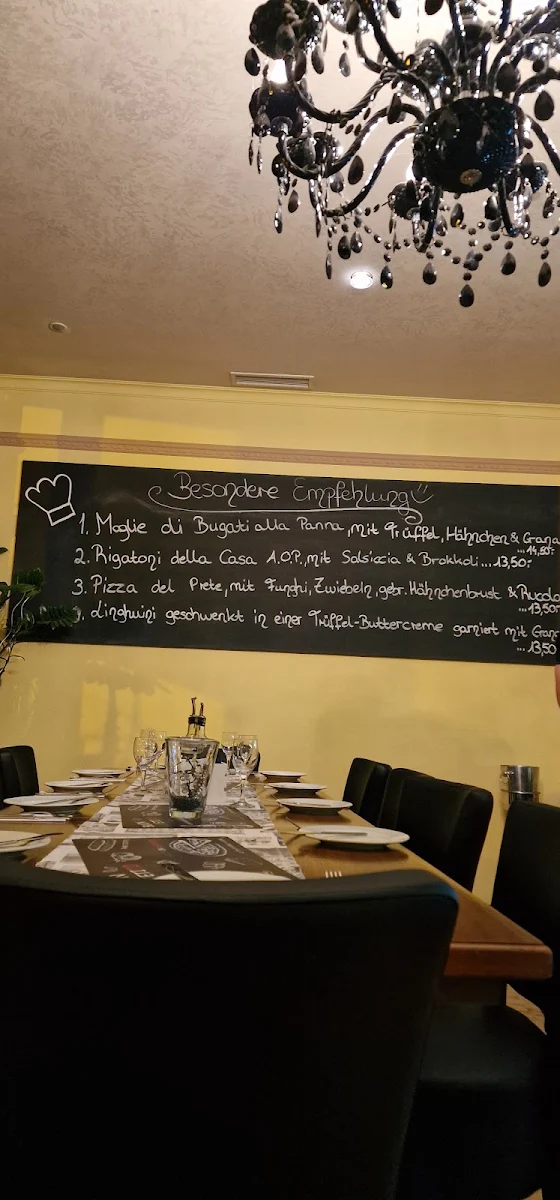 Besondere Empfehlung
1. Moglie di Bugati alla Panna, mit Trüffel, Hähnchen & Grana
... 14,50-
2. Rigatoni della Casa A.O.P., mit Salsiccia & Brokkoli... 13,50-
3. Pizza del Prete, mit Funghi, Zwiebeln, getr. Hähnchenbrust & Rucola
... 13,50
Linghuini geschwenkt in einer Trüffel-Buttercreme garniert mit Gran
... 13,50